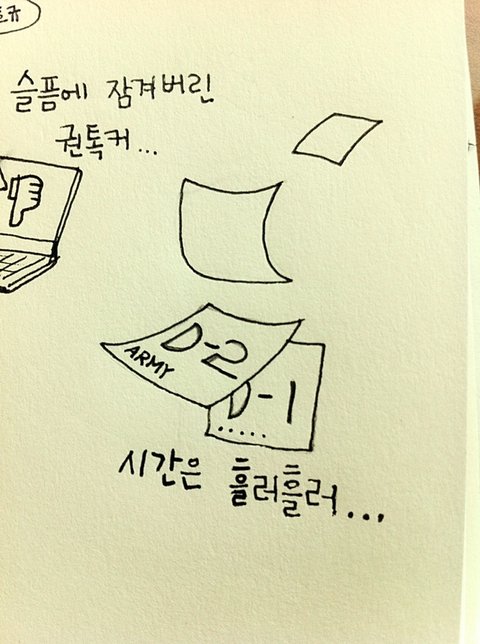 슬픔에 잠겨버린
권톡커...
D-2
ARMY
D-1
.....
시간은 흘러흘러...